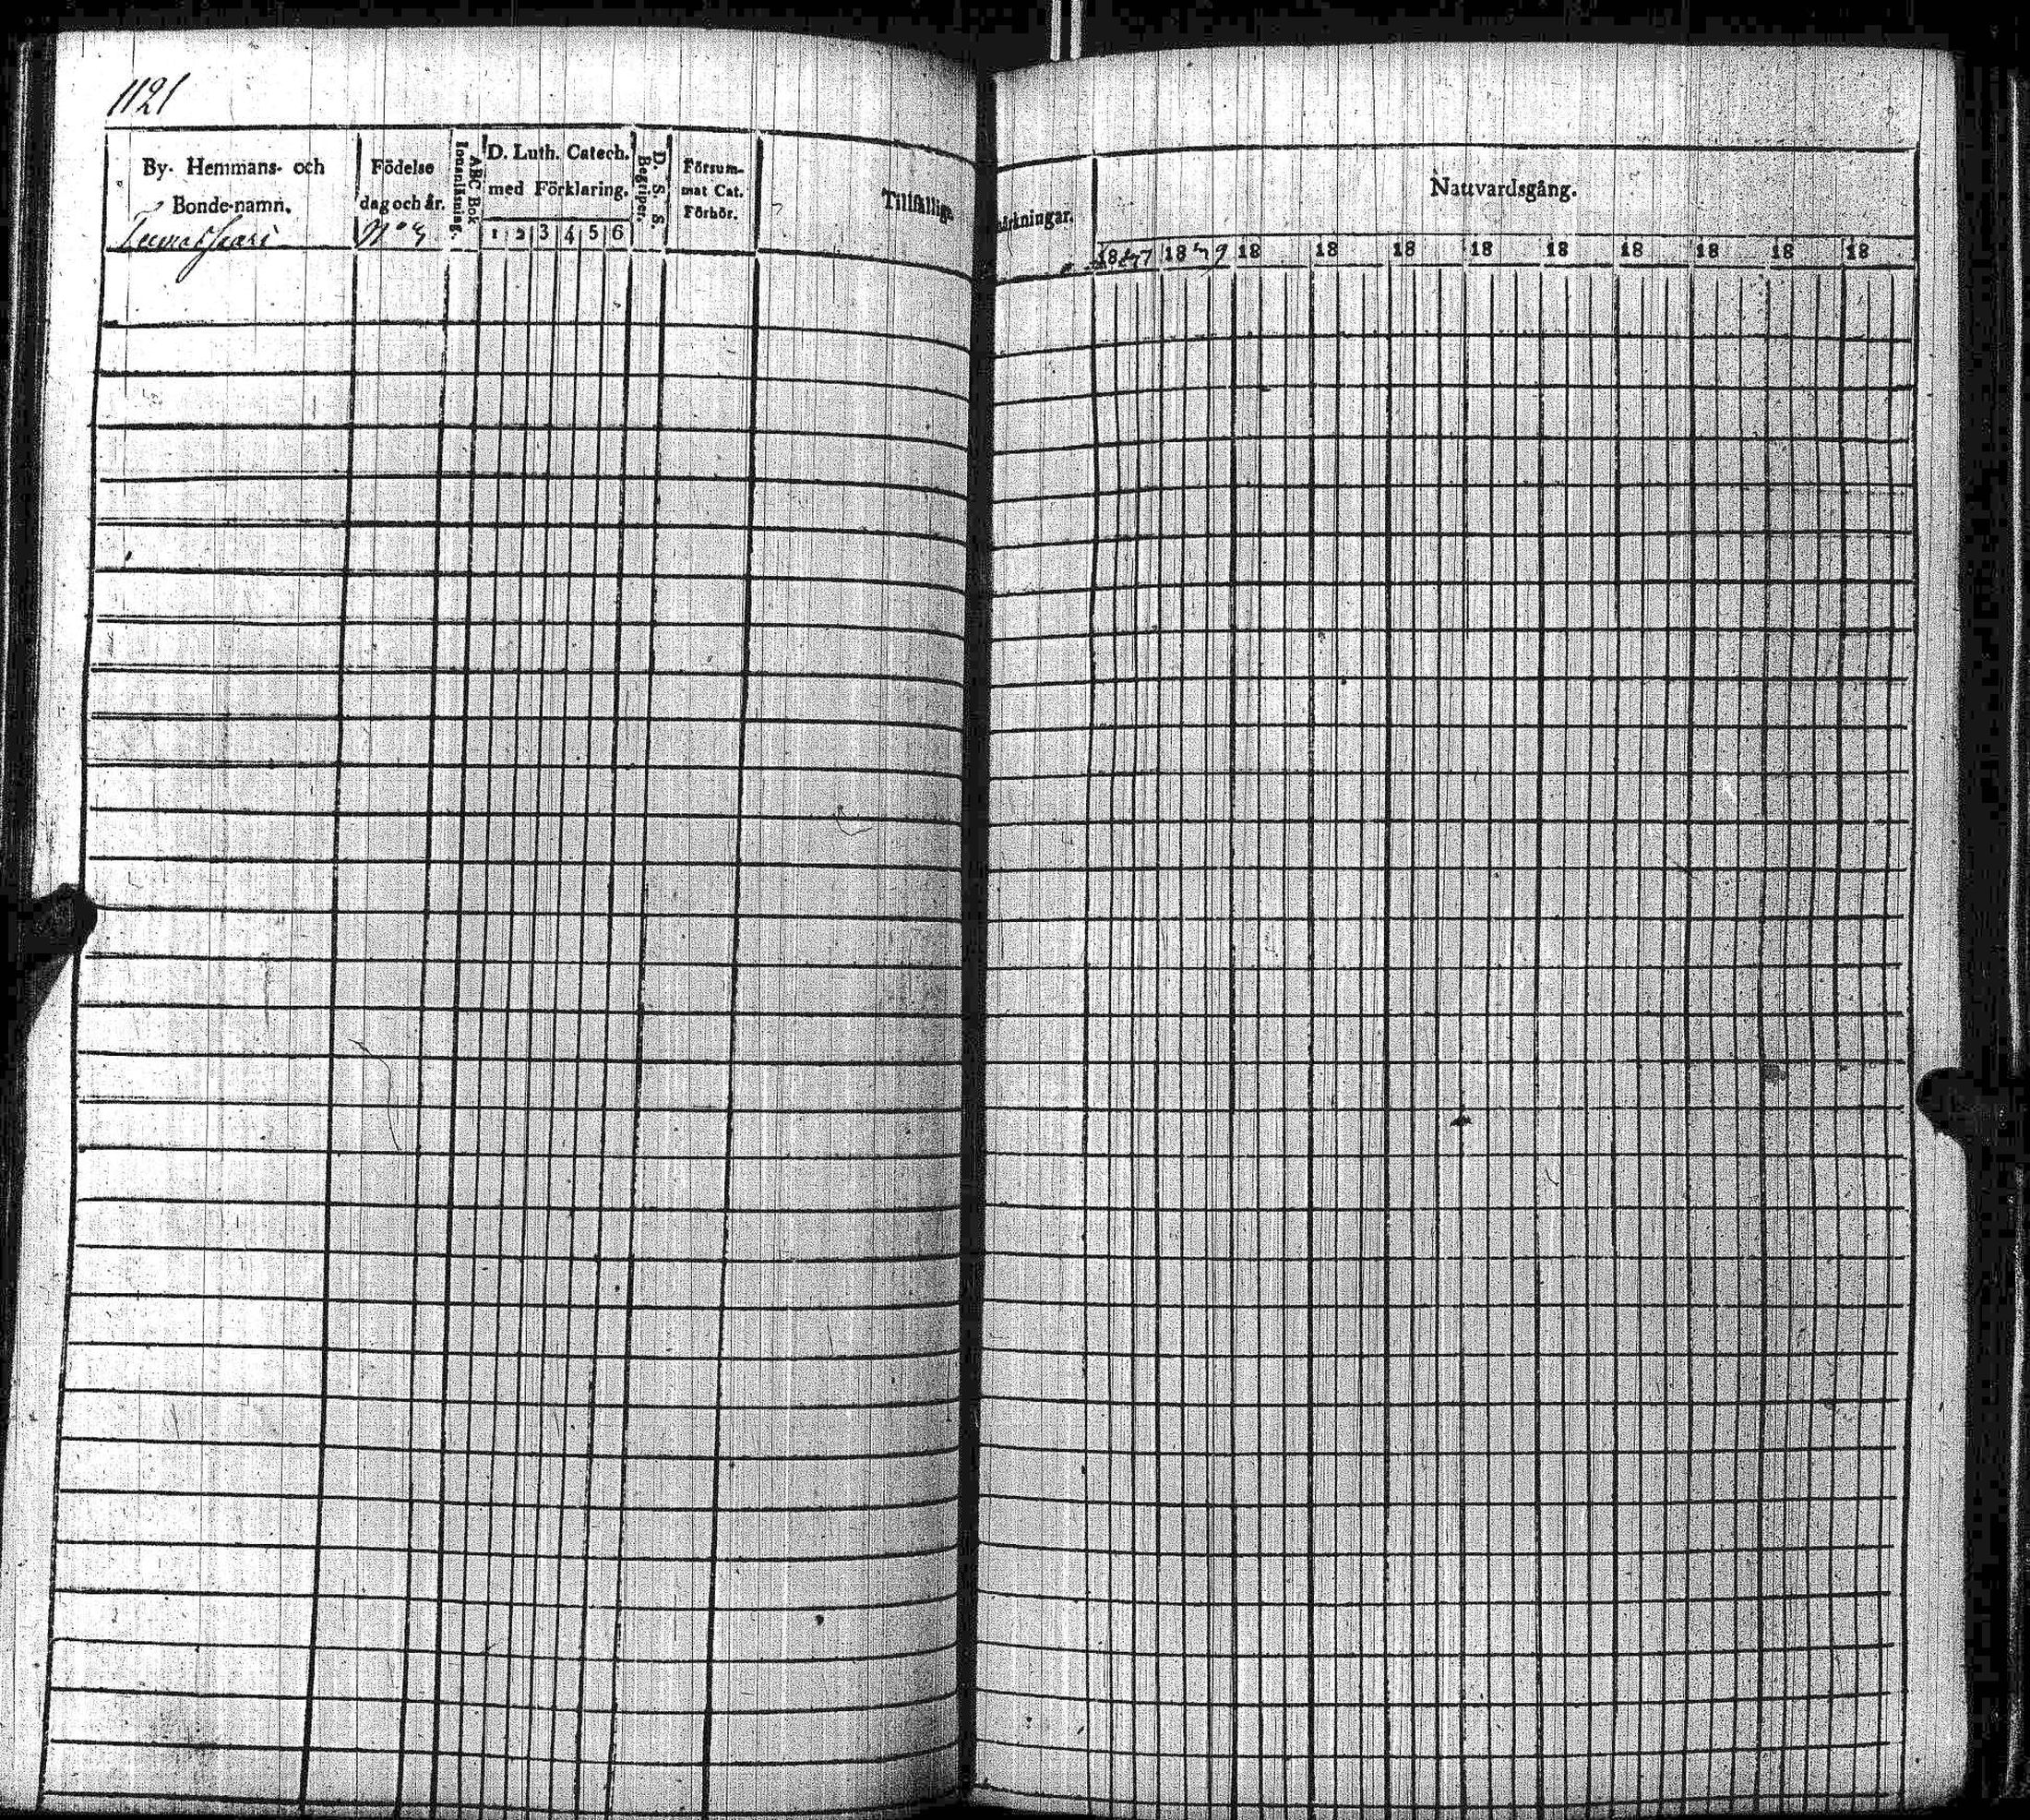 1121
By- Hemmans- och
Bonde-namn.
Födelse
dag och år.
ABC Bok
Innanläsning.
D. Luth. Catech.
med Förklaring.
1 2 3 4 5 6
D. S. S.
Begriper.
Försum-
mat Cat.
Förhör.
Tillfällige
märkningar.
Nattvardsgång.
18 18 18 18 18 18 18 18 18 18 18